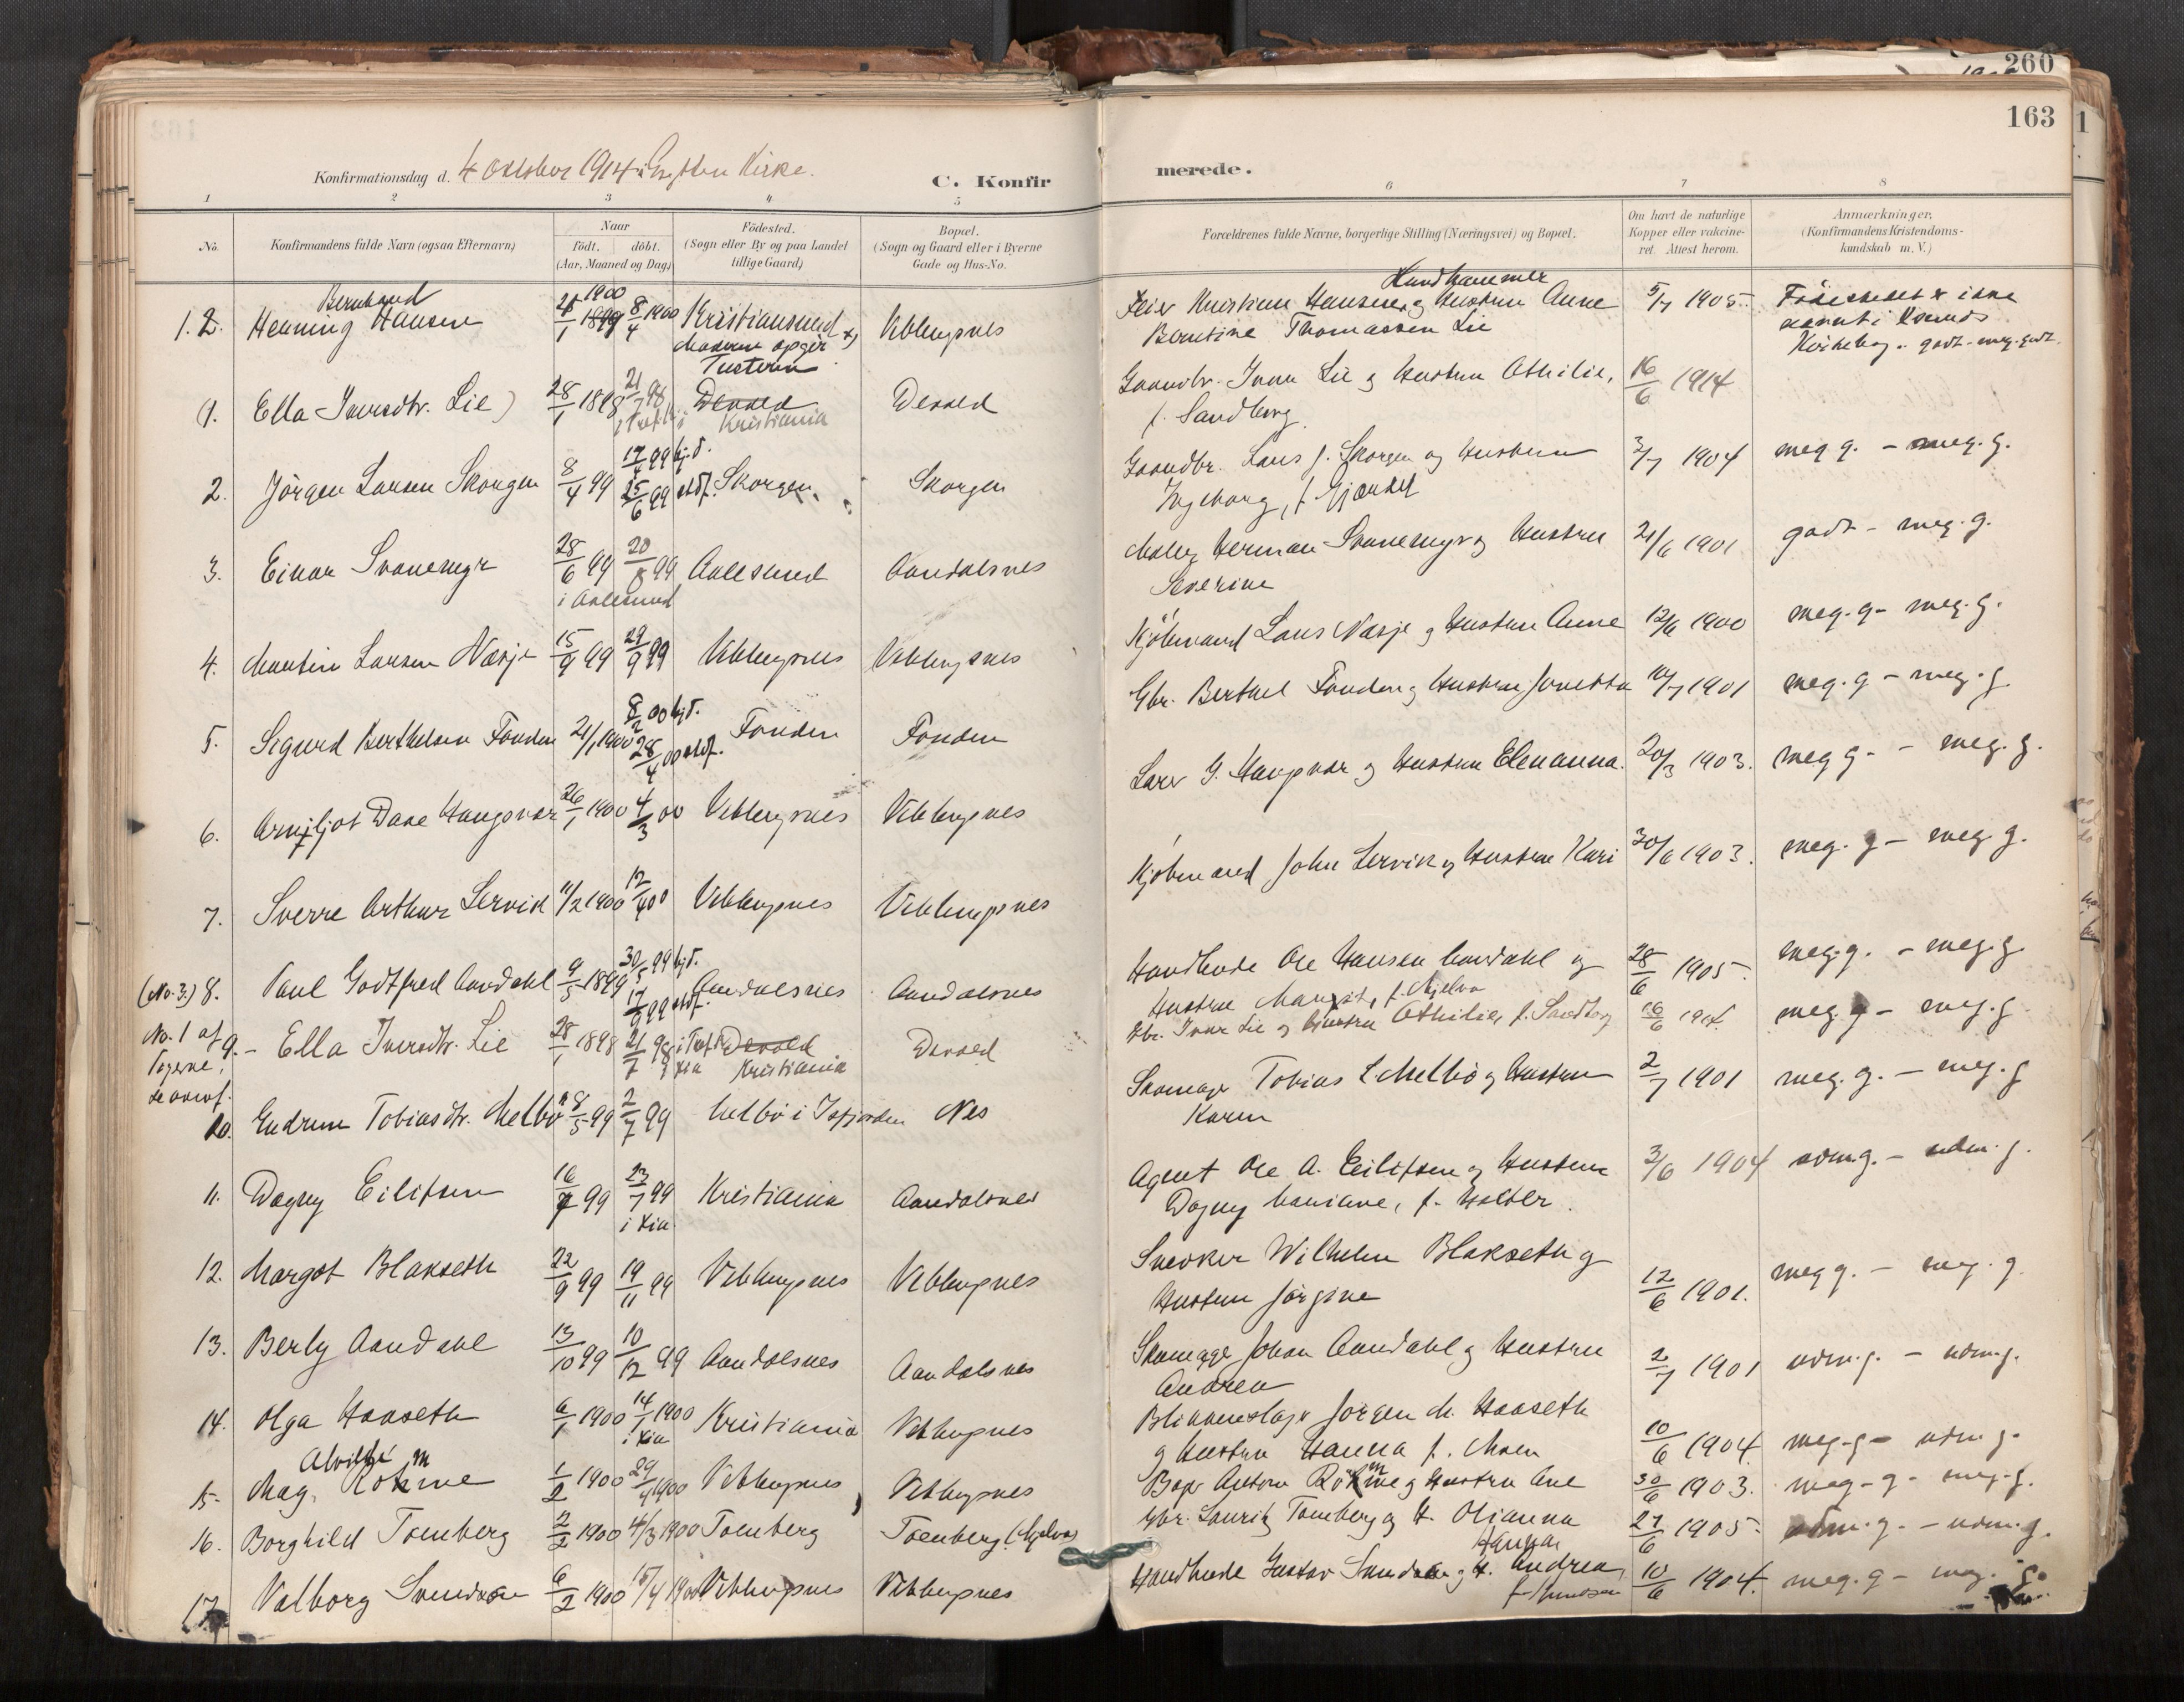 260
163
Konfirmationsdag d. 4 oktober 1914 i Kirke.
C. Konfirmerede.
1 2 3 4 5 6 7 8
No.
Konfirmandens fulde Navn (ogsaa Efternavn)
Naar
födt. döbt.
(Aar, Maaned og Dag)
Födested.
(Sogn eller By og paa Landet
tillige Gaard)
Bopæl.
(Sogn og Gaard eller i Byerne
Gade og Hus-No.
Forældrenes fulde Navne, borgerlige Stilling (Næringsvei) og Bopæl.
Om havt de naturlige
Kopper eller vakcine-
ret. Attest herom.
Anmærkninger.
(Konfirmandens Kristendoms-
kundskab m. V.)
Bernhard
1900
Hundhammer
Henning Hansen 1899 8/4 1900 Kristiansund x) Veblungsnes Kristian Hansen og Hustru Anne 5/7 1905 ikke
Moderen opgir Berntine Thomassen Lie
Tusteren Kirkebog. godt - meg. godt.
(1. Ella Iversdtr. Lie) 28/1 1898 21/7 98 Devold Devold Gaardbr. Iver Lie og Hustru Othilie, 16/6 1914
Kristiania f. Sandberg
17/4 99 hj. d.
2. Jörgen Larsen Skorgen 8/4 99 25/6 99 stdf. Skorgen Skorgen Gaardbr. Lars J. Skorgen og Hustru 3/7 1904 meg g. - meg. g.
Ingeborg, f.
3. Einar Svanemyr 28/6 99 20/8 99 Aalesund Aandalsnes Maler Herman Svanemyr og Hustru 21/6 1901 godt - meg. g.
i Aalesund Severine
4. Martin Larsen Næsje 15/9 99 29/9 99 Veblungsnes Veblungsnes Kjöbmand Lars Næsje og Hustru Anne 12/6 1900 meg. g - meg. g.
8/2 00 hj. d.
5. Sigurd Berthelsen Fonden 21/1 1900 28/4 00 stdf. Fonden Fonden Gbr. Berthel Fonden og Hustru Jonetta 10/7 1901 meg. g - meg. g
6. Arnljot Dave Haugsvær 26/1 1900 4/3 00 Veblungsnes Veblungsnes Lars G. Haugsvær og Hustru Elenanna. 20/3 1903. meg g - meg. g.
7. Sverre Arthur Lervik 11/2 1900 12/4 00 Veblungsnes Veblungsnes Kjöbmand John Lervik og Hustru Kari 30/6 1903. meg. g - meg. g.
30/5 99 hj. d.
(No. 3.) 8. Paul Godtfred Aandahl 9/5 1899 17/9 99 stdf. Aandalsnes Aandalsnes Handlende Ole Hansen Aandahl og 28/6 1905 meg. g. - meg. g
Hustru Margit, f. Mjelva
No. 1 af 9. - Ella Iversdtr. Lie 28/1 1898 21/7 98 Devold Devold Gbr. Iver Lie og Hustru Othilie, f. Sandberg 16/6 1914. meg. g - meg. g
Pigerne, i Kia Kristiania
10. Gudrun Tobiasdtr. Melbö 8/5 99 2/7 99 Melbö i Isfjorden Nes Skomager Tobias L Melbö og Hustru 2/7 1901 meg. g. - meg. g
Karen
11. Dagny Eilifsen 16/4 99 23/7 99 Kristiania Aandalsnes Agent Ole A. Eilifsen og Hustru 3/6 1904 udm. g. - udm. g.
i Kia Dagny Mariane, f. Holter.
12. Margot Blakseth 22/9 99 19/11 99 Veblungsnes Veblungsnes Snedker Wilhelm Blakseth og 12/6 1901. meg g. - meg. g
Hustru Jörgine
13. Berly Aandahl 13/10 99 10/12 99 Aandalsnes Aandalsnes Skomager Johan Aandahl og Hustru 2/7 1901 udm. g. - udm. g.
Andrea
14. Olga Haaseth 6/1 1900 14/1 1900 Kristiania Veblungsnes Blikkenslager Jörgen M. Haaseth 10/6 1904. meg. g - udm. g.
i Kia og Hustru Hanna f. Moen
Alvilde
15. Mag. Röhme 1/2 1900 29/4 1900 Veblungsnes Veblungsnes Bager Anton Röhme og Hustru Ane 30/6 1903. meg. g - meg. g.
16. Borghild Toenberg 2/2 1900 4/3 1900 Toenberg Toenberg (Mjelva) Gbr. Laurits Toenberg og H. Olianna 27/6 1905. udm. g. - udm. g.
Hanna
17. Valborg Svendsen 6/2 1900 15/4 1900 Veblungsnes Veblungsnes Handlende Gustav Svendsen og H. Andrea, 10/6 1904. meg. g - meg. g.